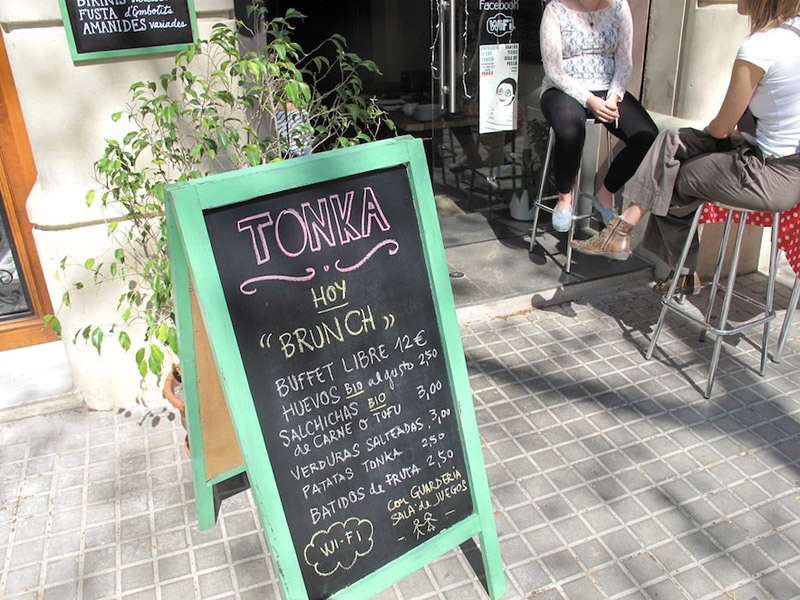 FUSTA d'Embotits
AMANIDES variades
Facebook
WiFi
TONKA
HOY
"BRUNCH"
BUFFET LIBRE 12€
HUEVOS BIO al gusto 2,50
SALCHICHAS BIO 3,00
de CARNE o TOFU
VERDURAS SALTEADAS 3,00
PATATAS TONKA 2,50
BATIDOS de FRUTA 2,50
con GUARDERIA
SALA de JUEGOS
WI-FI